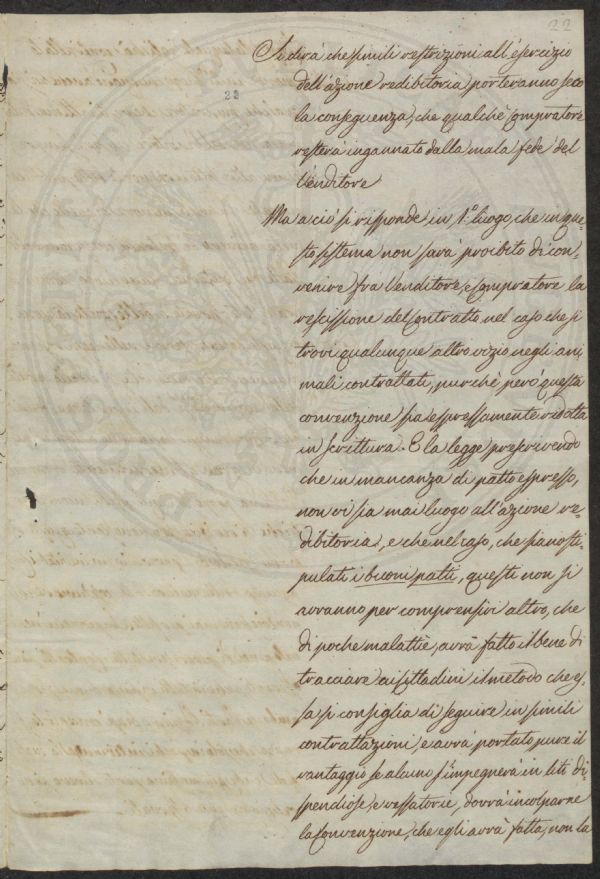 22
23
Si dirà che simili restrizioni all'esercizio
dell'azione redibitoria porteranno seco
la conseguenza, che qualche Compratore
resterà ingannato dalla mala fede del
Venditore
Ma a ciò si risponde in 1.° luogo, che in que-
sto sistema non sarà proibito di con-
venire frà Venditore, e Compratore la
rescissione del Contratto nel caso che si
trovi qualunque altro vizio negli ani
mali contrattati, purchè però questa
convenzione sia espressamente ridotta
in Scrittura. E la legge prescrivendo
che in mancanza di patto espresso,
non vi sia mai luogo all'azione re-
dibitoria, e che nel caso, che siano sti-
pulati i buoni patti, questi non si
avranno per comprensivi altro, che
di poche malattie, avrà fatto il bene di
tracciare ai Cittadini il metodo che es-
sa si consiglia di seguire in simili
contrattazioni, e avrà portato pure il
vantaggio se alcuno s'impegnerà in liti di-
spendiose, e vessatorie, dovrà incolparne
la Convenzione, che egli avrà fatta, non la